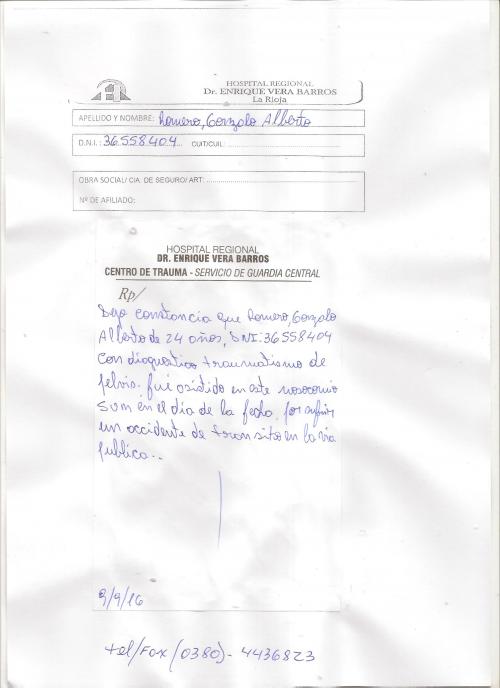 HOSPITAL REGIONAL
Dr. ENRIQUE VERA BARROS
La Rioja
APELLIDO Y NOMBRE: Romero, Gonzalo Alberto
D.N.I.: 36.558404 CUIT/CUIL:
OBRA SOCIAL/ CIA. DE SEGURO/ ART:
Nº DE AFILIADO:
HOSPITAL REGIONAL
DR. ENRIQUE VERA BARROS
CENTRO DE TRAUMA - SERVICIO DE GUARDIA CENTRAL
Rp/
Dejo constancia que Romero, Gonzalo
Alberto de 24 años, DNI: 36558404
con diagnostico traumatismo de
pelvis. fué asistido en este nosocomio
en el día de la fecha, por sufrir
un accidente de transito en la via
publica..
9/9/16
tel/Fax (0380)- 4436823